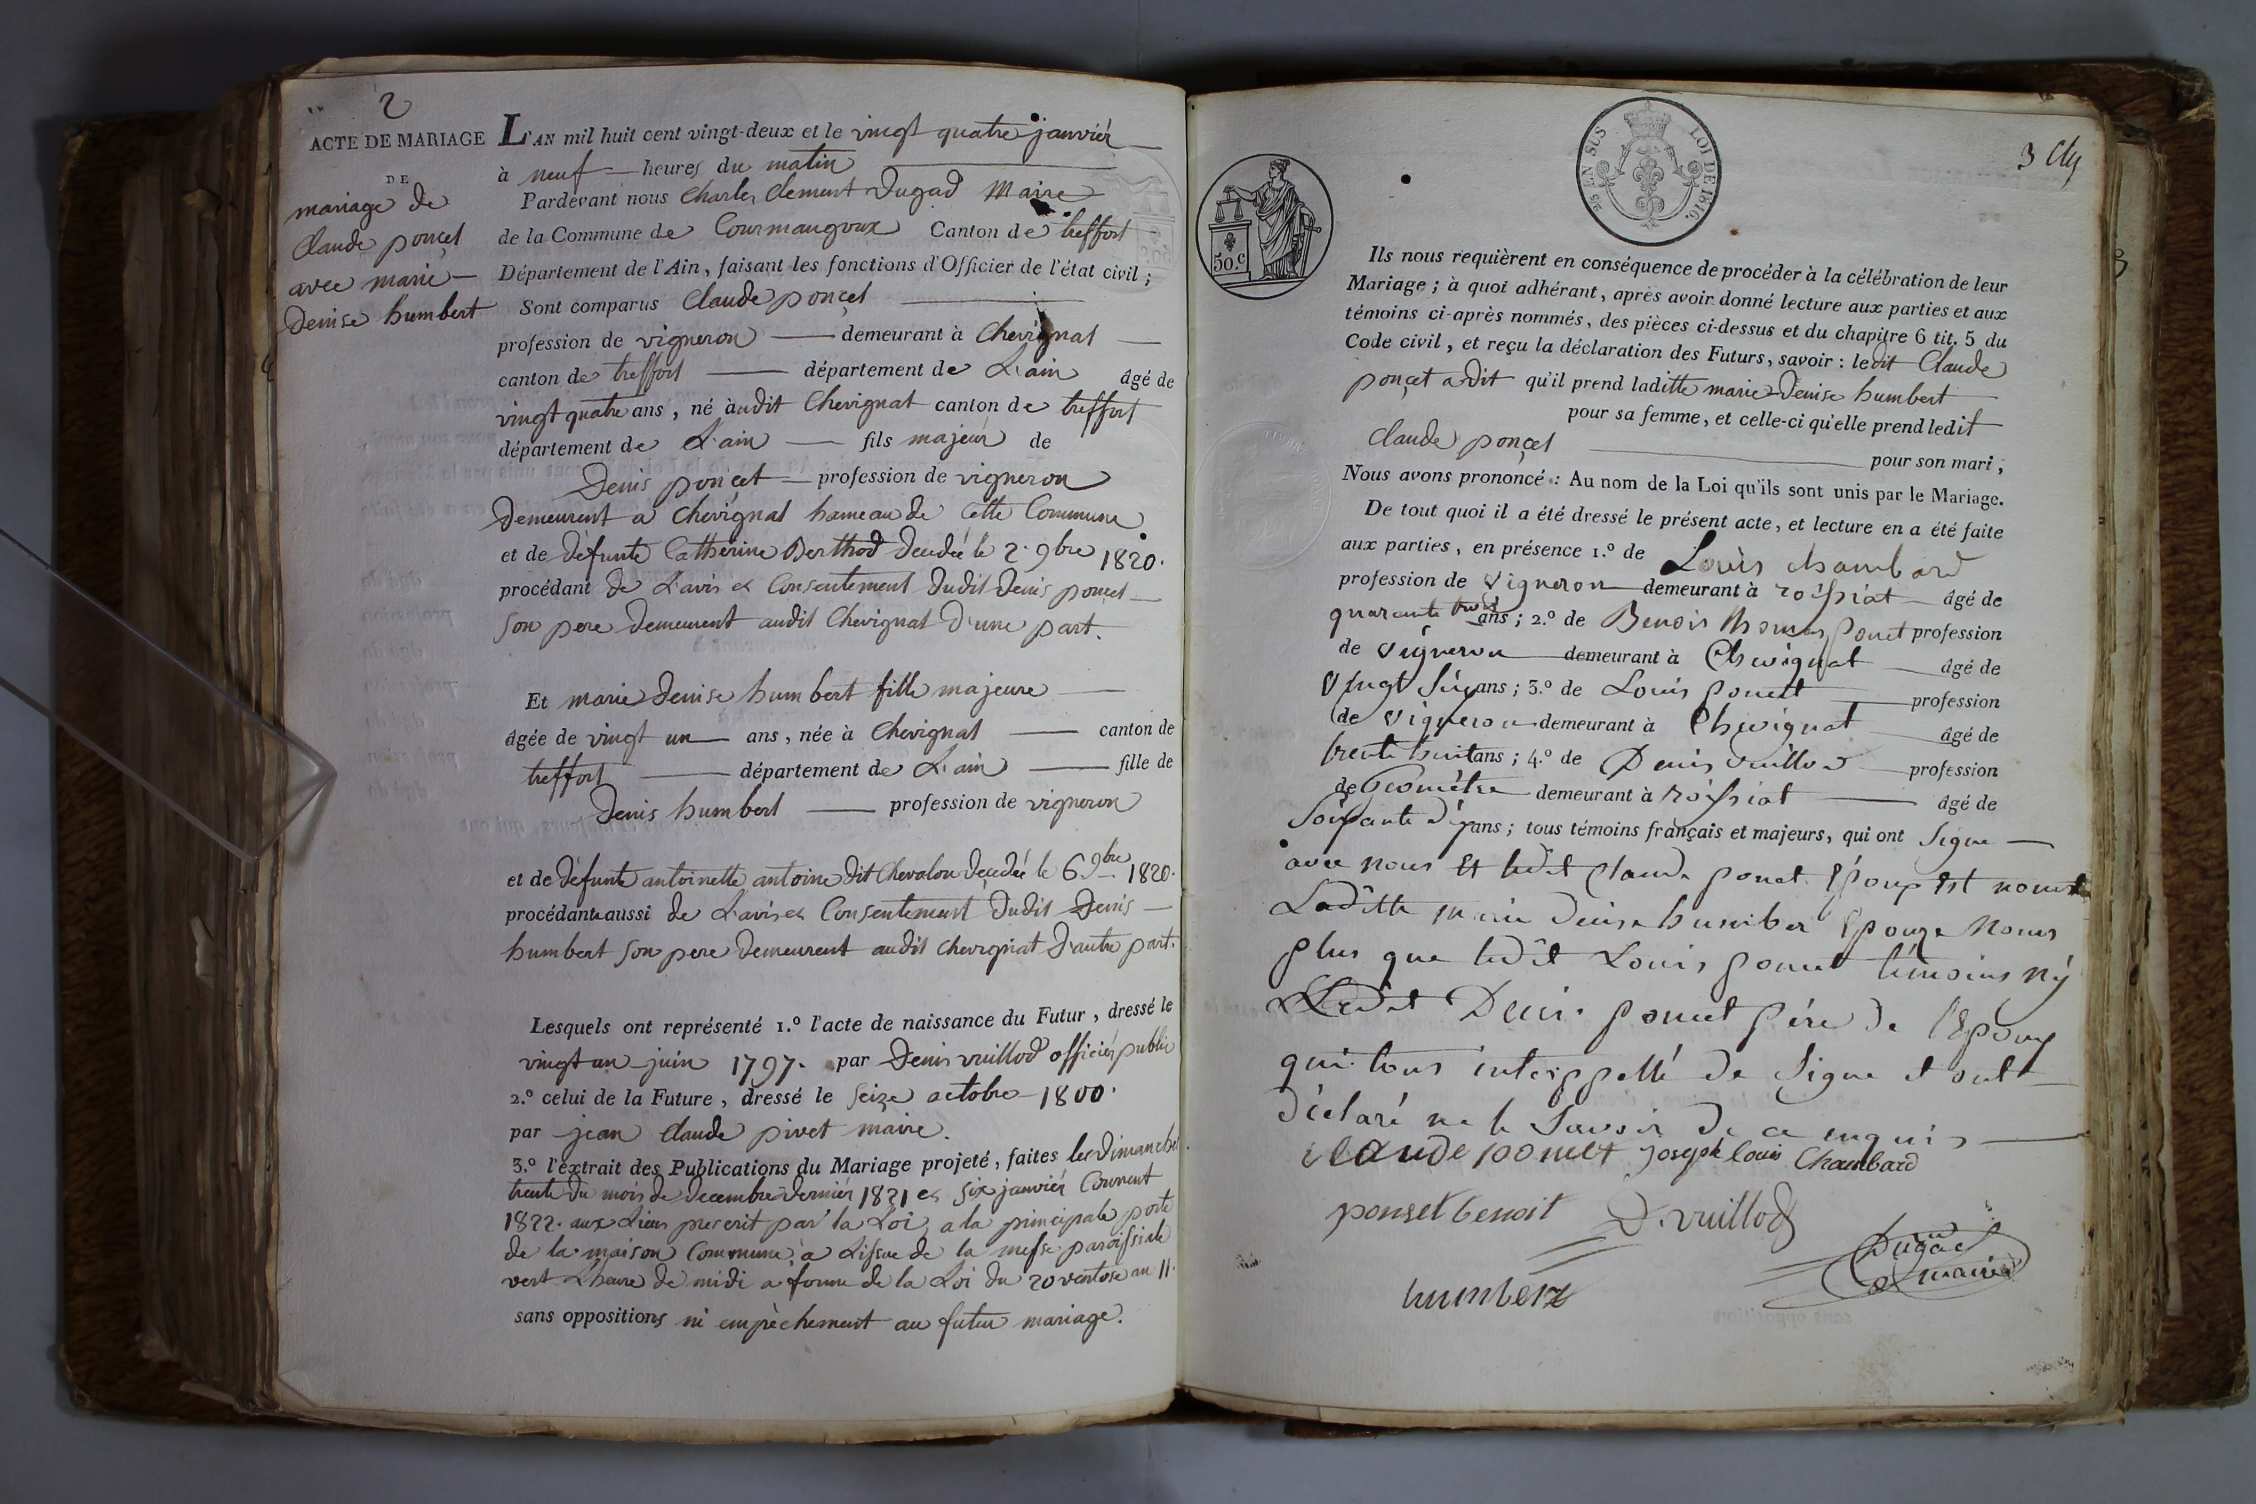 2
ACTE DE MARIAGE
DE
mariage de
Claude ponçet
avec marie
denise humbert
L'AN mil huit cent vingt-deux et le vingt quatre janvier
à neuf heures du matin
Pardevant nous Charles Clement Dugad Maire
de la Commune de Courmangoux Canton de treffort
Département de l'Ain, faisant les fonctions d'Officier de l'état civil;
Sont comparus Claude ponçet
profession de vigneron demeurant à Chevignat
canton de treffort département de L'ain âgé de
vingt quatre ans, né audit Chevignat canton de treffort
département de L'ain fils majeur de
Denis ponçet profession de vigneron
demeurent a chevignat hameau de Cette Commune
et de défunte Catherine Berthod decedée le 2. 9bre 1820.
procédant de L'avis et Consentement dudit denis ponçet
son pere demeurent audit Chevignat d'une part.
Et marie denise humbert fille majeure
âgée de vingt un ans, née à Chevignat canton de
treffort département de L'ain fille de
Denis humbert profession de vigneron
et de défunte antoinette antoine dit Chevalon decedée le 6 9bre 1820.
procédante aussi de L'avis et Consentement dudit Denis
humbert son pere demeurent audit chevignat d'autre part.
Lesquels ont représenté 1.º l'acte de naissance du Futur, dressé le
vingt un juin 1797. par Denis vuillod officier public
2.º celui de la Future, dressé le seize octobre 1800.
par jean Claude pivet maire.
3.º l'extrait des Publications du Mariage projeté, faites les Dimanches
trente du mois de decembre dernier 1821 et six janvier Courrent
1822. aux Lieux prescrit par la Loi, a la principale porte
de la maison Commune, a Lissue de la messe paroissiale
vert L'heure de midi a forme de la Loi du 20 ventose an 11.
sans oppositions ni empèchement au futur mariage.
25 EN SUS LOI DE 1816.
50.c
3
Ils nous requièrent en conséquence de procéder à la célébration de leur
Mariage; à quoi adhérant, après avoir donné lecture aux parties et aux
témoins ci-après nommés, des pièces ci-dessus et du chapitre 6 tit. 5 du
Code civil, et reçu la déclaration des Futurs, savoir: ledit Claude
ponçet a dit qu'il prend laditte marie denise humbert
pour sa femme, et celle-ci qu'elle prend ledit
Claude ponçet pour son mari;
Nous avons prononcé: Au nom de la Loi qu'ils sont unis par le Mariage.
De tout quoi il a été dressé le présent acte, et lecture en a été faite
aux parties, en présence 1.º de Louis chambard
profession de vigneron demeurant à roissiat âgé de
quarante trois ans; 2.º de Benois thomas ponet profession
de vigneron demeurant à Chevignat âgé de
vingt six ans; 3.º de Louis ponet profession
de vigneron demeurant à Chevignat âgé de
trente huit ans; 4.º de Denis vuillod profession
de Géomètre demeurant à roissiat âgé de
soixante dix ans; tous témoins français et majeurs, qui ont signe
avec nous et ledit Claude ponet Époux et nomet
Laditte marie denise humber Épouze nomis
plus que ledit Louis ponet témoins ny
Ledit Denis ponet père de l'Epoux
qui tous interppellé de signe et ont
déclaré ne le savoir de ce enquis
claude pomet joseph louis Chambard
ponset benoit D. vuillod
Dugad
maire
humbert